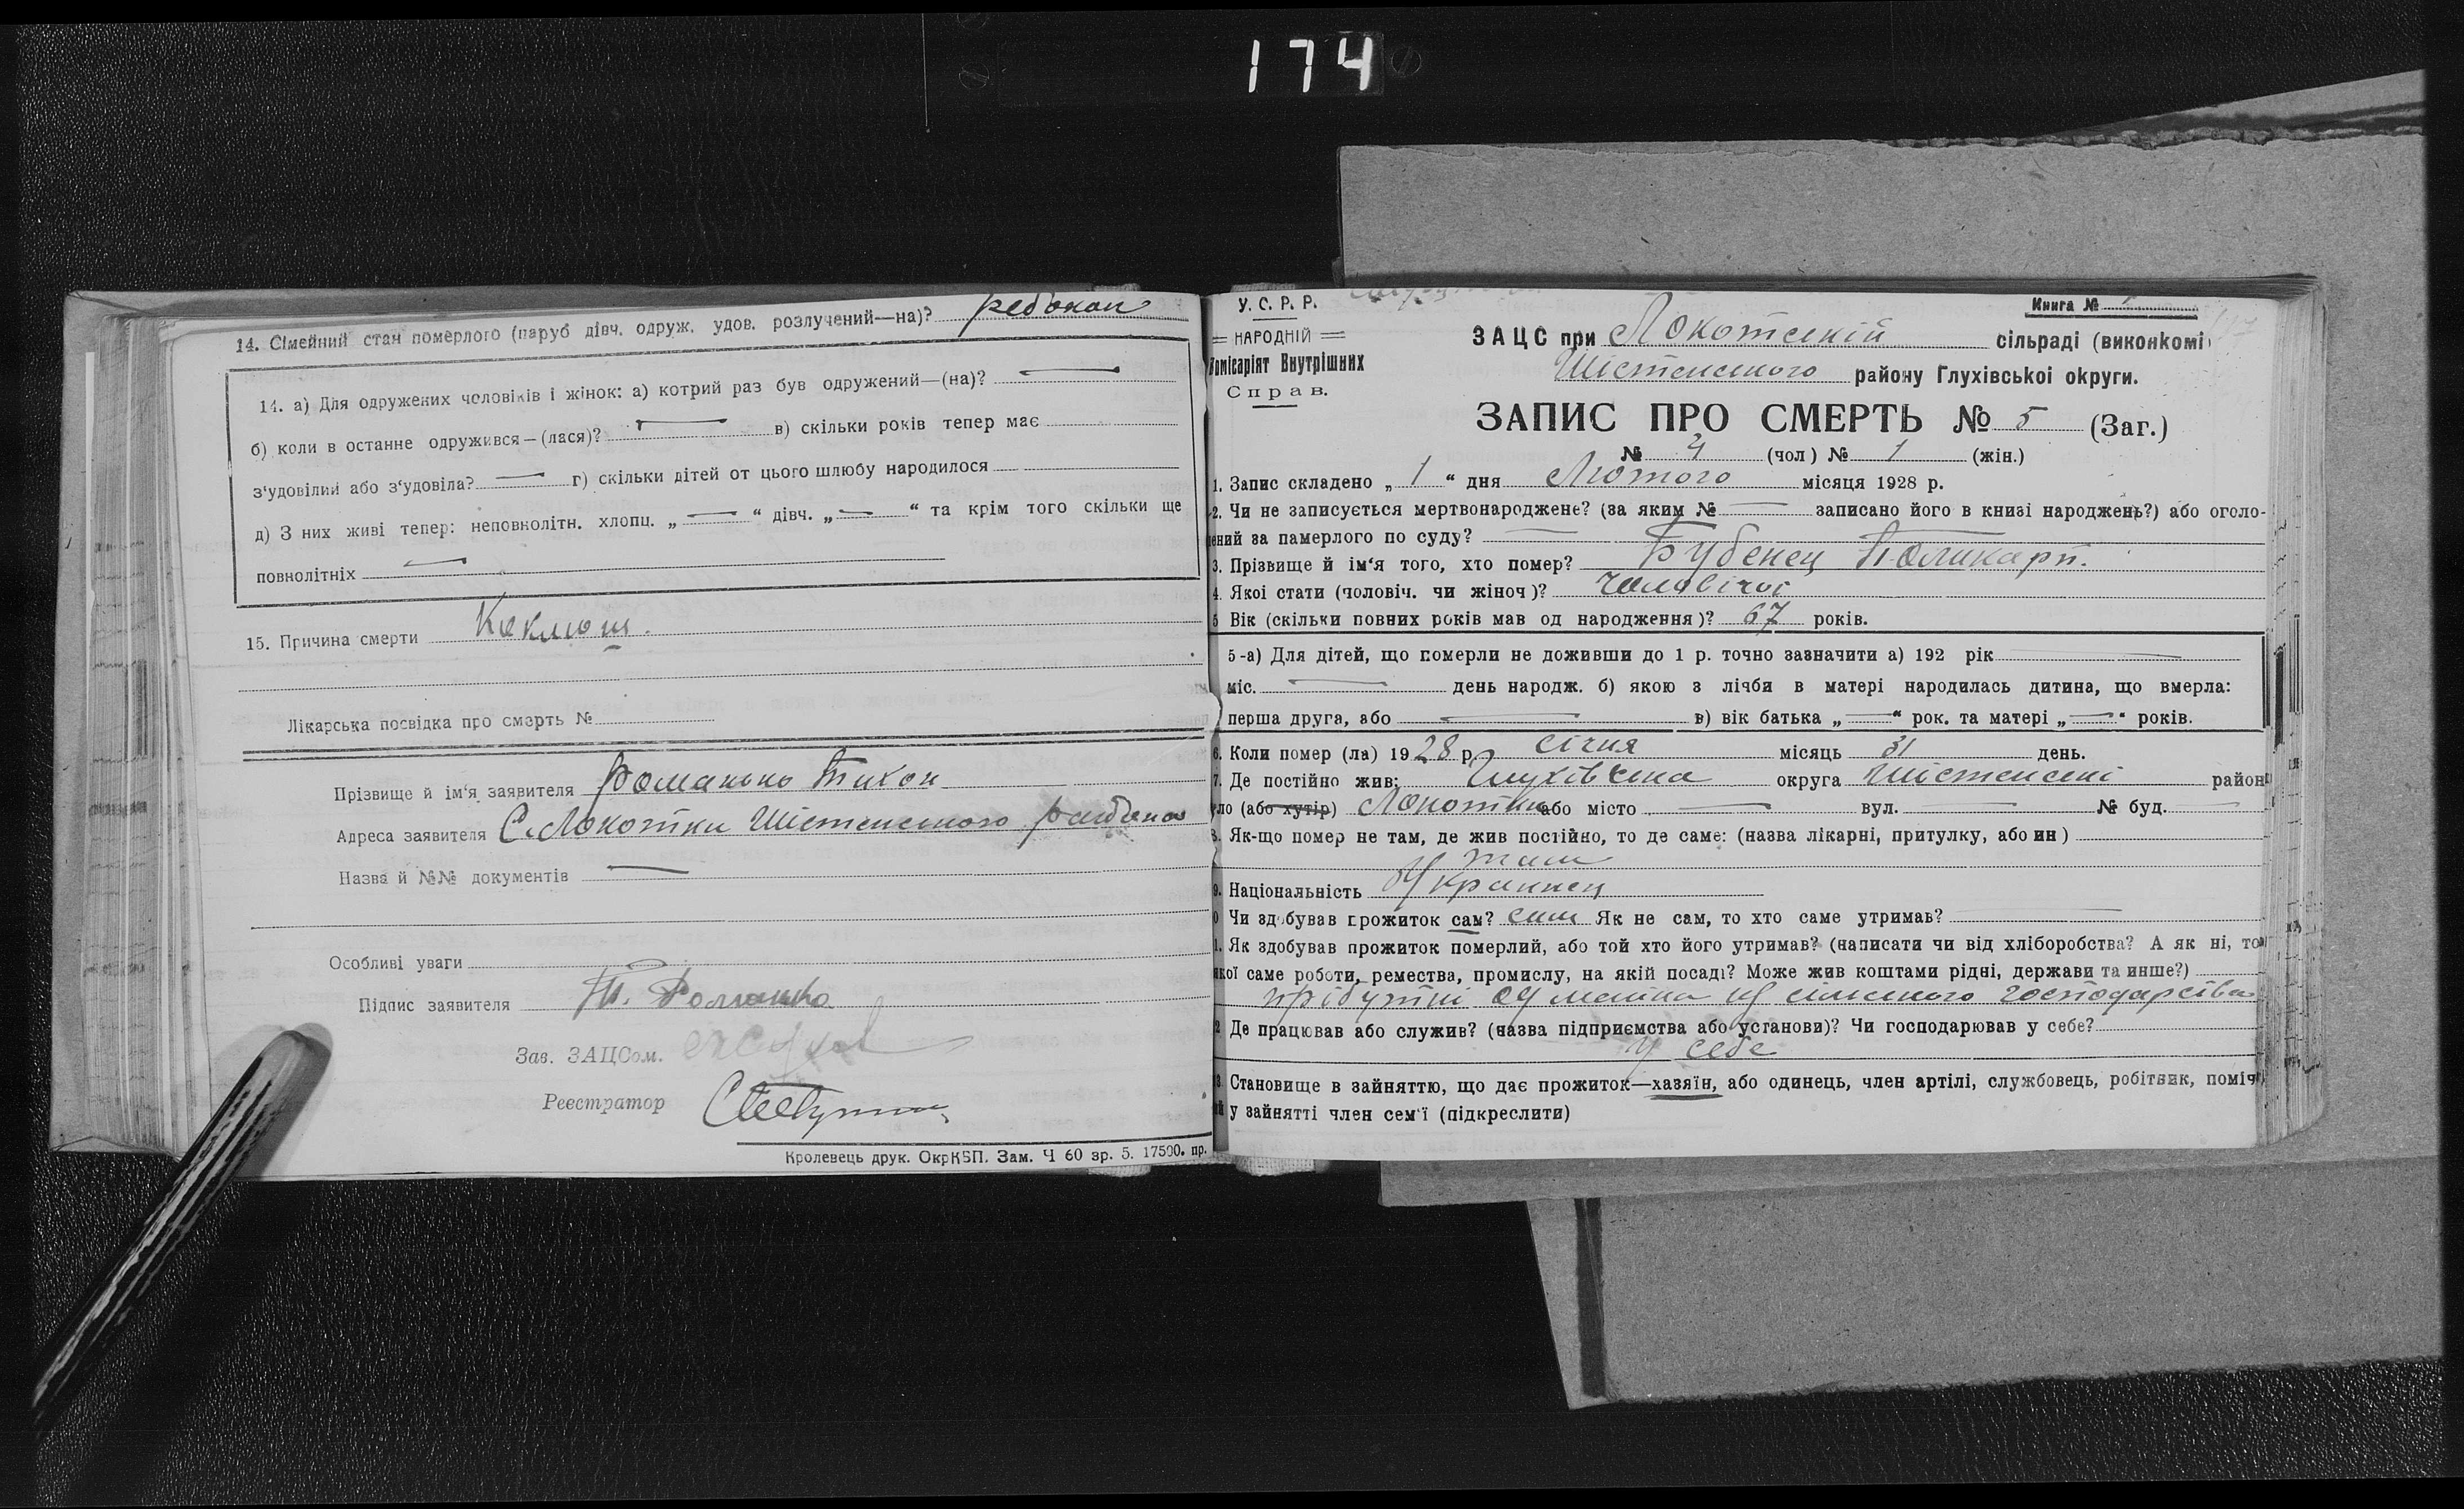 174
14. Сімейний стан померлого (паруб дівч. одруж. удов. розлучений—на)? ребѣнок
14. а) Для одружених чоловіків і жінок: а) котрий раз був одружений—(на)? —
б) коли в останне одружився—(лася)? — в) скільки років тепер має
з‘удовілий або з‘удовіла? — г) скільки дітей от цього шлюбу народилося
д) З них живі тепер: неповнолітн. хлопц. „ — “ дівч. „ — “ та крім того скільки ще
повнолітніх —
15. Причина смерти Коклюш.
Лікарська посвідка про смерть №
Прізвище й ім‘я заявителя Романько Тихон
Адреса заявителя С. Локотки Шістенського района
Назва й №№ документів —
Особливі уваги
Підпис заявителя Т. Романько
Зав. ЗАЦСом.
Реестратор
Кролевець друк. ОкрКВП. Зам. Ч 60 зр. 5. 17500. пр.
У. С. Р. Р.
НАРОДНІЙ
Комісаріят Внутрішних
Справ.
Книга №
ЗАЦС при Локотській сільраді (виконкомі)
Шістенського району Глухівської округи.
ЗАПИС ПРО СМЕРТЬ № 5 (Заг.)
№ 4 (чол) № 1 (жін.)
1. Запис складено „ 1 “ дня Лютого місяця 1928 р.
2. Чи не записується мертвонароджене? (за яким № — записано його в книзі народжень?) або оголо-
шений за памерлого по суду? —
3. Прізвище й ім‘я того, хто помер? Бубенец Поликарп.
4. Якоі стати (чоловіч. чи жіноч)? чоловічої
5 Вік (скільки повних років мав од народження)? 67 років.
5-а) Для дітей, що померли не доживши до 1 р. точно зазначити а) 192 рік —
міс. — день народж. б) якою з лічби в матері народилась дитина, що вмерла:
перша друга, або — в) вік батька „—“ рок. та матері „—“ років.
6. Коли помер (ла) 1928 р. січня місяць 31 день.
7. Де постійно жив: Глухівська округа Шістенський район
село (або хутір) Локотки або місто — вул. — № буд. —
8. Як-що помер не там, де жив постійно, то де саме: (назва лікарні, притулку, або ин)
там
9. Національність Украинец
10 Чи здобував прожиток сам? сам Як не сам, то хто саме утримав? —
11. Як здобував прожиток померлий, або той хто його утримав? (написати чи від хліборобства? А як ні, то
якої саме роботи, ремества, промислу, на якій посаді? Може жив коштами рідні, держави та инше?)
прібутки од сільского господарства
12 Де працював або служив? (назва підприємства або установи)? Чи господарював у себе?
У себе
13 Становище в зайняттю, що дає прожиток—хазяїн, або одинець, член артілі, службовець, робітник, поміч-
ний у зайнятті член сем‘ї (підкреслити)